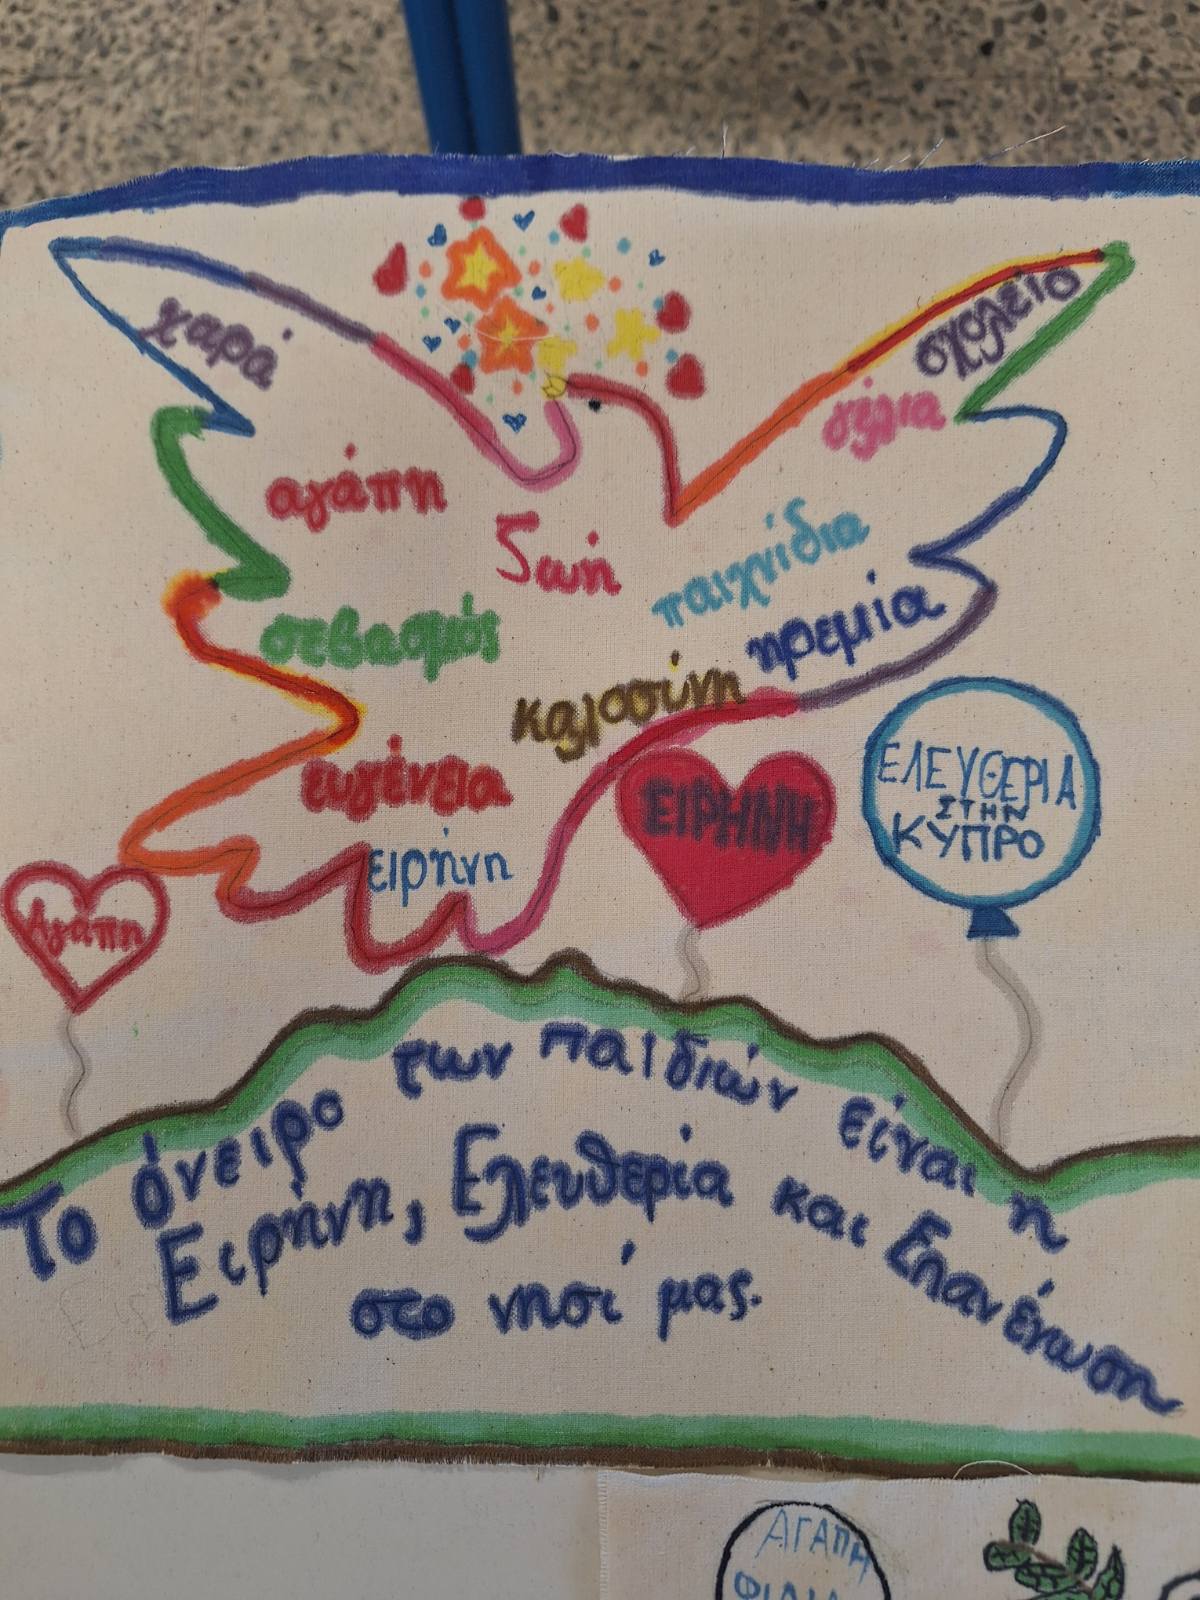 χαρά
σχολείο
γέλια
αγάπη
ζωή
παιχνίδια
σεβασμός
ηρεμία
καλοσύνη
ευγένεια
ειρήνη
ΕΙΡΗΝΗ
ΕΛΕΥΘΕΡΙΑ
ΣΤΗΝ
ΚΥΠΡΟ
Αγάπη
Το όνειρο των παιδιών είναι η
Ειρήνη, Ελευθερία και Επανένωση
στο νησί μας.
ΑΓΑΠΗ
ΦΙΛΙΑ